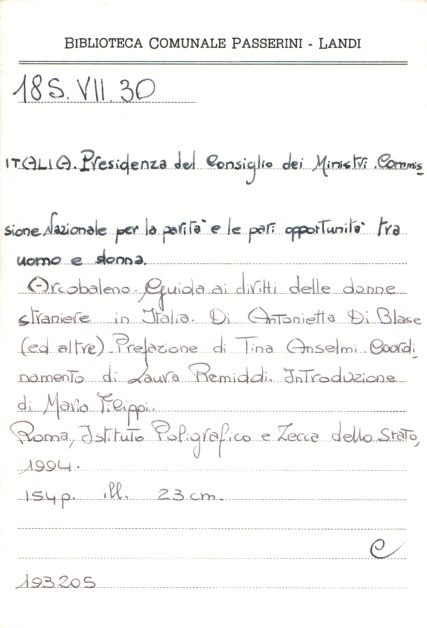 BIBLIOTECA COMUNALE PASSERINI - LANDI
18S.VII.30
ITALIA. Presidenza del Consiglio dei Ministri. Commis
sione Nazionale per la parità e le pari opportunità tra
uomo e donna.
Arcobaleno. Guida ai diritti delle donne
straniere in Italia. Di Antonietta Di Blase
(ed altre). Prefazione di Tina Anselmi. Coordi
namento di Laura Remiddi. Introduzione
di Mario Filippi.
Roma, Istituto Poligrafico e Zecca dello Stato,
1994.
154 p. ill. 23 cm.
C
193205